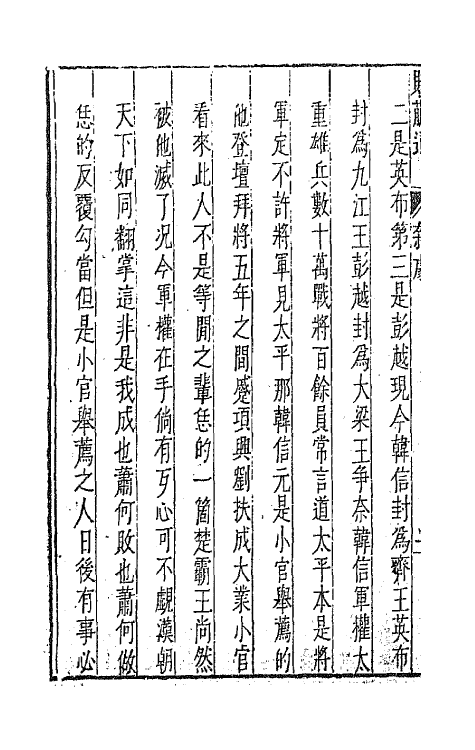 二是英布第三是彭越現今韓信封爲齊王英布
封爲九江王彭越封爲大梁王爭奈韓信軍權太
重雄兵數十萬戰將百餘員常言道太平本是將
軍定不許將軍見太平那韓信元是小官舉薦的
他登壇拜將五年之間蹙項興劉扶成大業小官
看來此人不是等閒之輩恁的一箇楚霸王尚然
被他滅了况今軍權在手倘有歹心可不覷漢朝
天下如同翻掌這非是我成也蕭何敗也蕭何做
恁的反覆勾當但是小官舉薦之人日後有事必